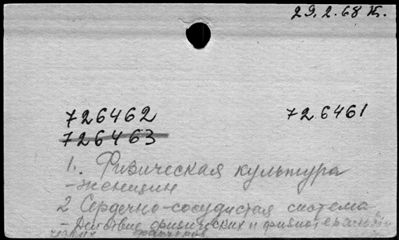 29.2.68 К.
726462 726461
726463
1. Физическая культура
- женщин
2 Сердечно-сосудистая система
- Действие физических и физиотерапевти
ческих факторов